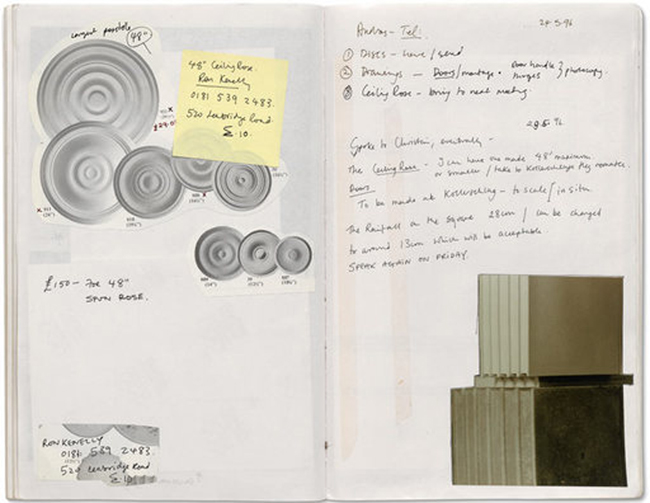 Largest possible 48"
48" Ceiling Rose.
Ron Kenelly
0181 539 2483.
520 Leabridge Road
E.10.
£150 - for 48"
SPUN ROSE.
RON KENELLY
0181 539 2483.
520 Leabridge Road
E.10.
24-5-96
Andras - Tel:
① DISCS - have / send
② Drawings - Doors / montage. Door handle hinges } photocopy.
③ Ceiling Rose - bring to next meeting.
Spoke to Christian, eventually -
The Ceiling Rose - I can have one made 48" maximum
or smaller / take to
Doors
To be made at - to scale / in situ
The Rainfall on the square 28cm / can be changed
to around 13cm which will be acceptable.
SPEAK AGAIN ON FRIDAY.